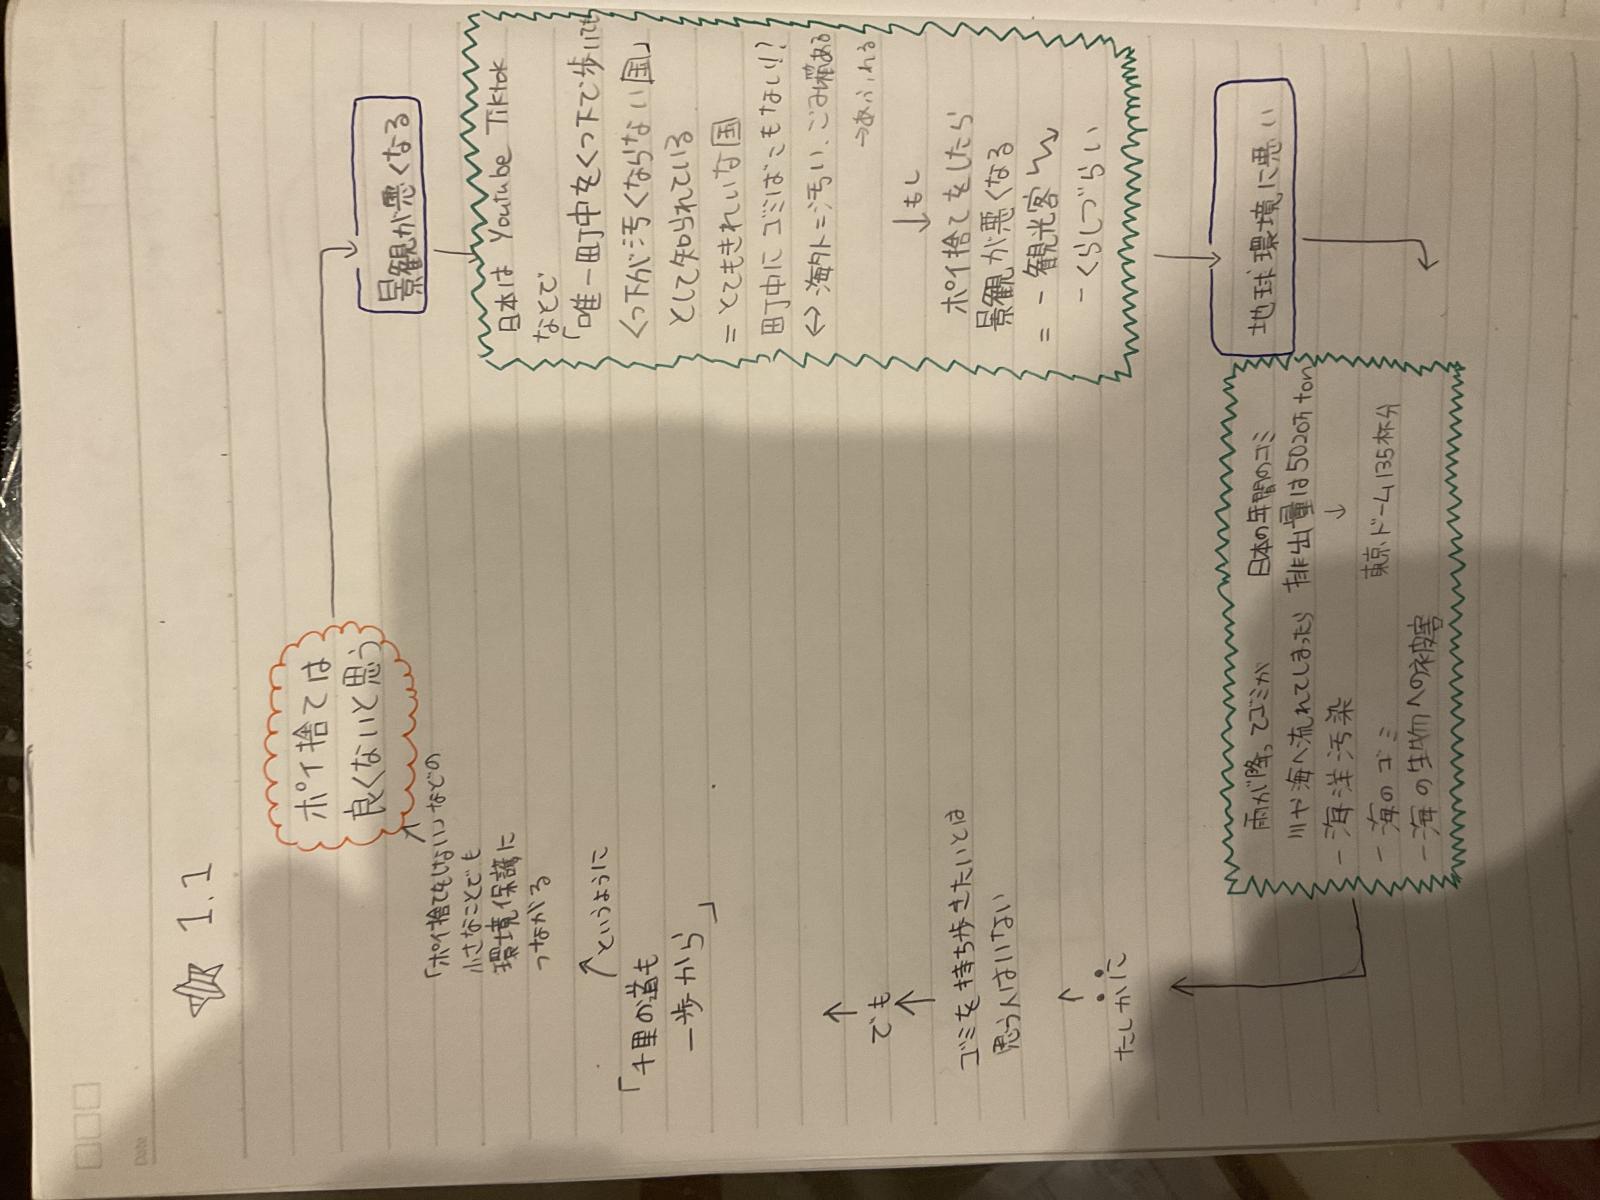 Date
☆ 1.1
ポイ捨ては
良くないと思う
景観が悪くなる
日本は Youtube Tiktok
などで
「唯一町中をくつ下で歩いても
くつ下が汚くならない国」
として知られている
= とてもきれいな国
町中にゴミばこもない!?
↔ 海外=汚い、ごみ箱ある
→あふれる
↓もし
ポイ捨てをしたら
景観が悪くなる
= - 観光客↘
- くらしづらい
地球環境に悪い
日本の年間のゴミ
排出量は5020万ton
↓
東京ドーム135杯分
雨が降ってゴミが
川や海へ流れてしまったら
- 海洋汚染
- 海のゴミ
- 海の生物への被害
たしかに
↑
ゴミを持ち歩きたいとは
思う人はいない
↑
でも
↑
「千里の道も
一歩から」
↑というように
「ポイ捨てをしない」などの
小さなことでも
環境保護に
つながる